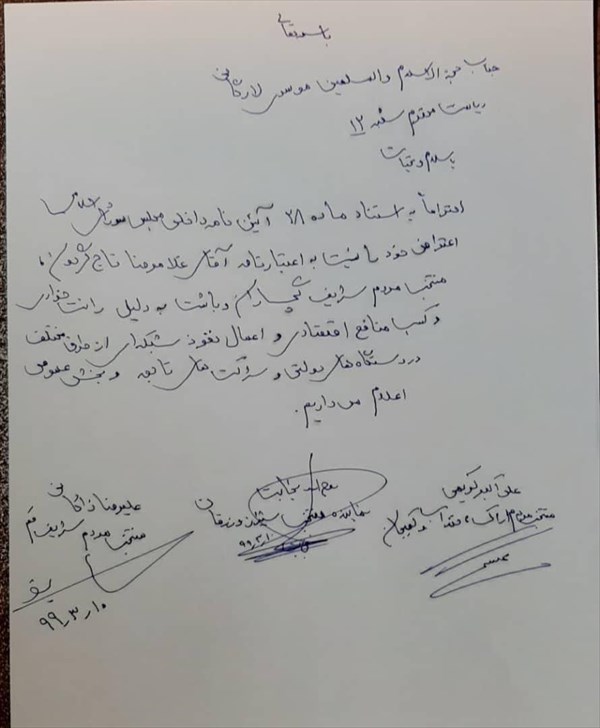 باسمه تعالی
جناب حجة الاسلام والمسلمین موسوی لارگانی
ریاست محترم شعبه ۱۲
باسلام و تحیات
احتراماً به استناد ماده ۲۸ آئین نامه داخلی مجلس شورای اسلامی
اعتراض خود را نسبت به اعتبارنامه آقای غلامرضا تاج گردون،
منتخب مردم شریف گچساران و باشت به دلیل رانت خواری
و کسب منافع اقتصادی و اعمال نفوذ شبکه‌ای از طرق مختلف
در دستگاه های دولتی و شرکت های تابعه و بخش عمومی
اعلام می داریم.
علی اکبر کریمی
منتخب مردم اراک، و کمیجان
روح اله نجابت
نماینده منتخب شیراز و زرقان
۹۹/۳/۱۰
علیرضا زاکانی
منتخب مردم شریف قم
۹۹/۳/۱۰